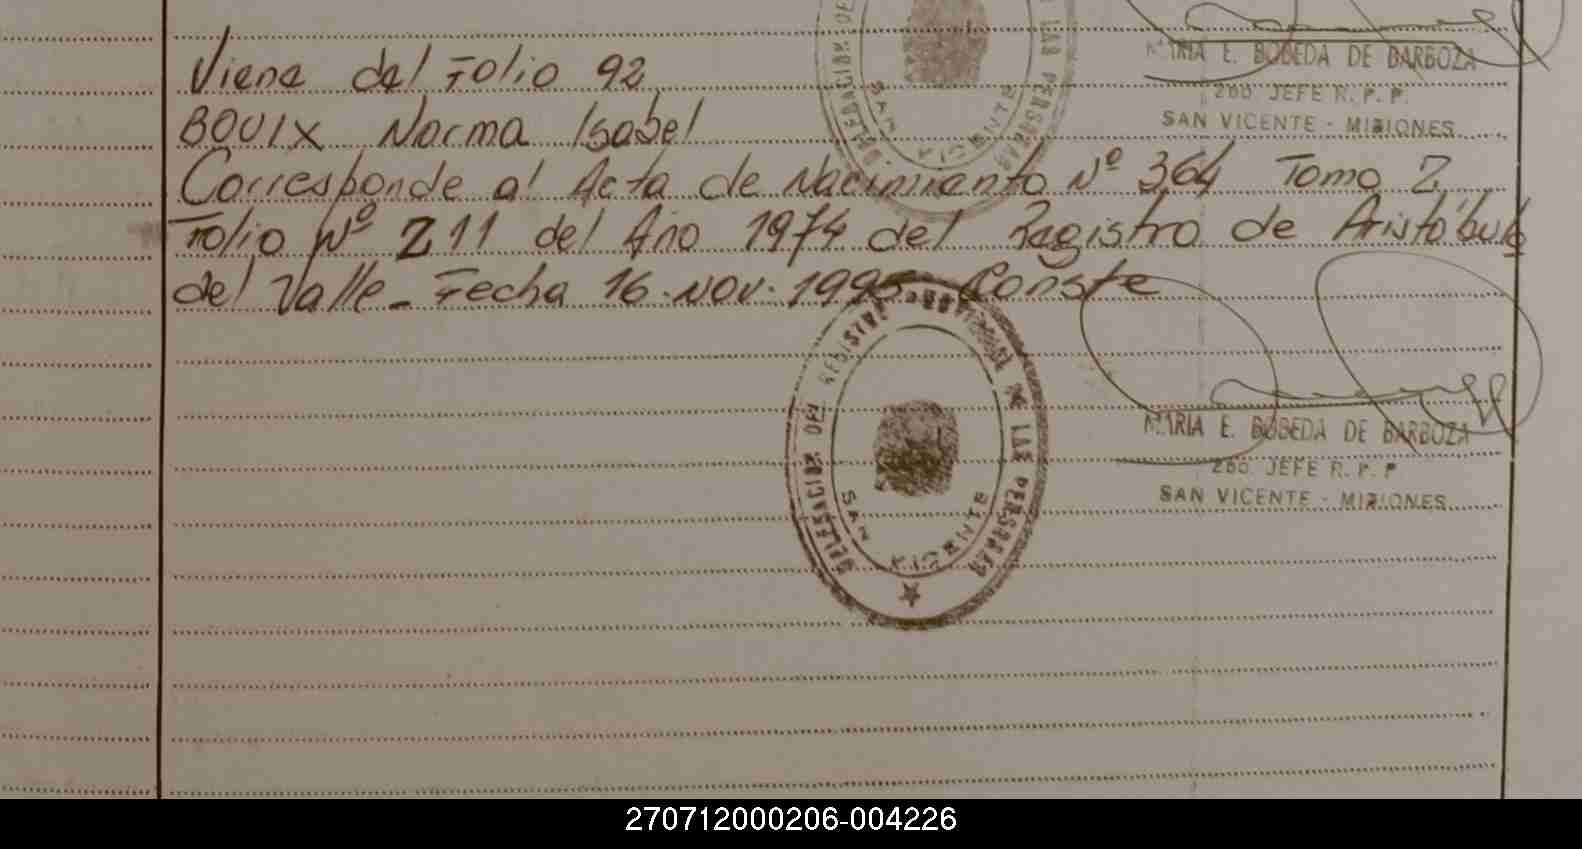 MARIA E. BOBEDA DE BARBOZA
2do JEFE R. P. P.
SAN VICENTE - MISIONES
Viene del Folio 92
BOUIX Norma Isabel
Corresponde al Acta de Nacimiento Nº 364 Tomo 2
Folio Nº 211 del Año 1974 del Registro de Aristóbulo
del Valle_ Fecha 16. Nov. 1995 Conste
DELEGACION DEL REGISTRO DE LAS PERSONAS
SAN VICENTE
MARIA E. BOBEDA DE BARBOZA
2do JEFE R. P. P
SAN VICENTE - MISIONES
270712000206-004226